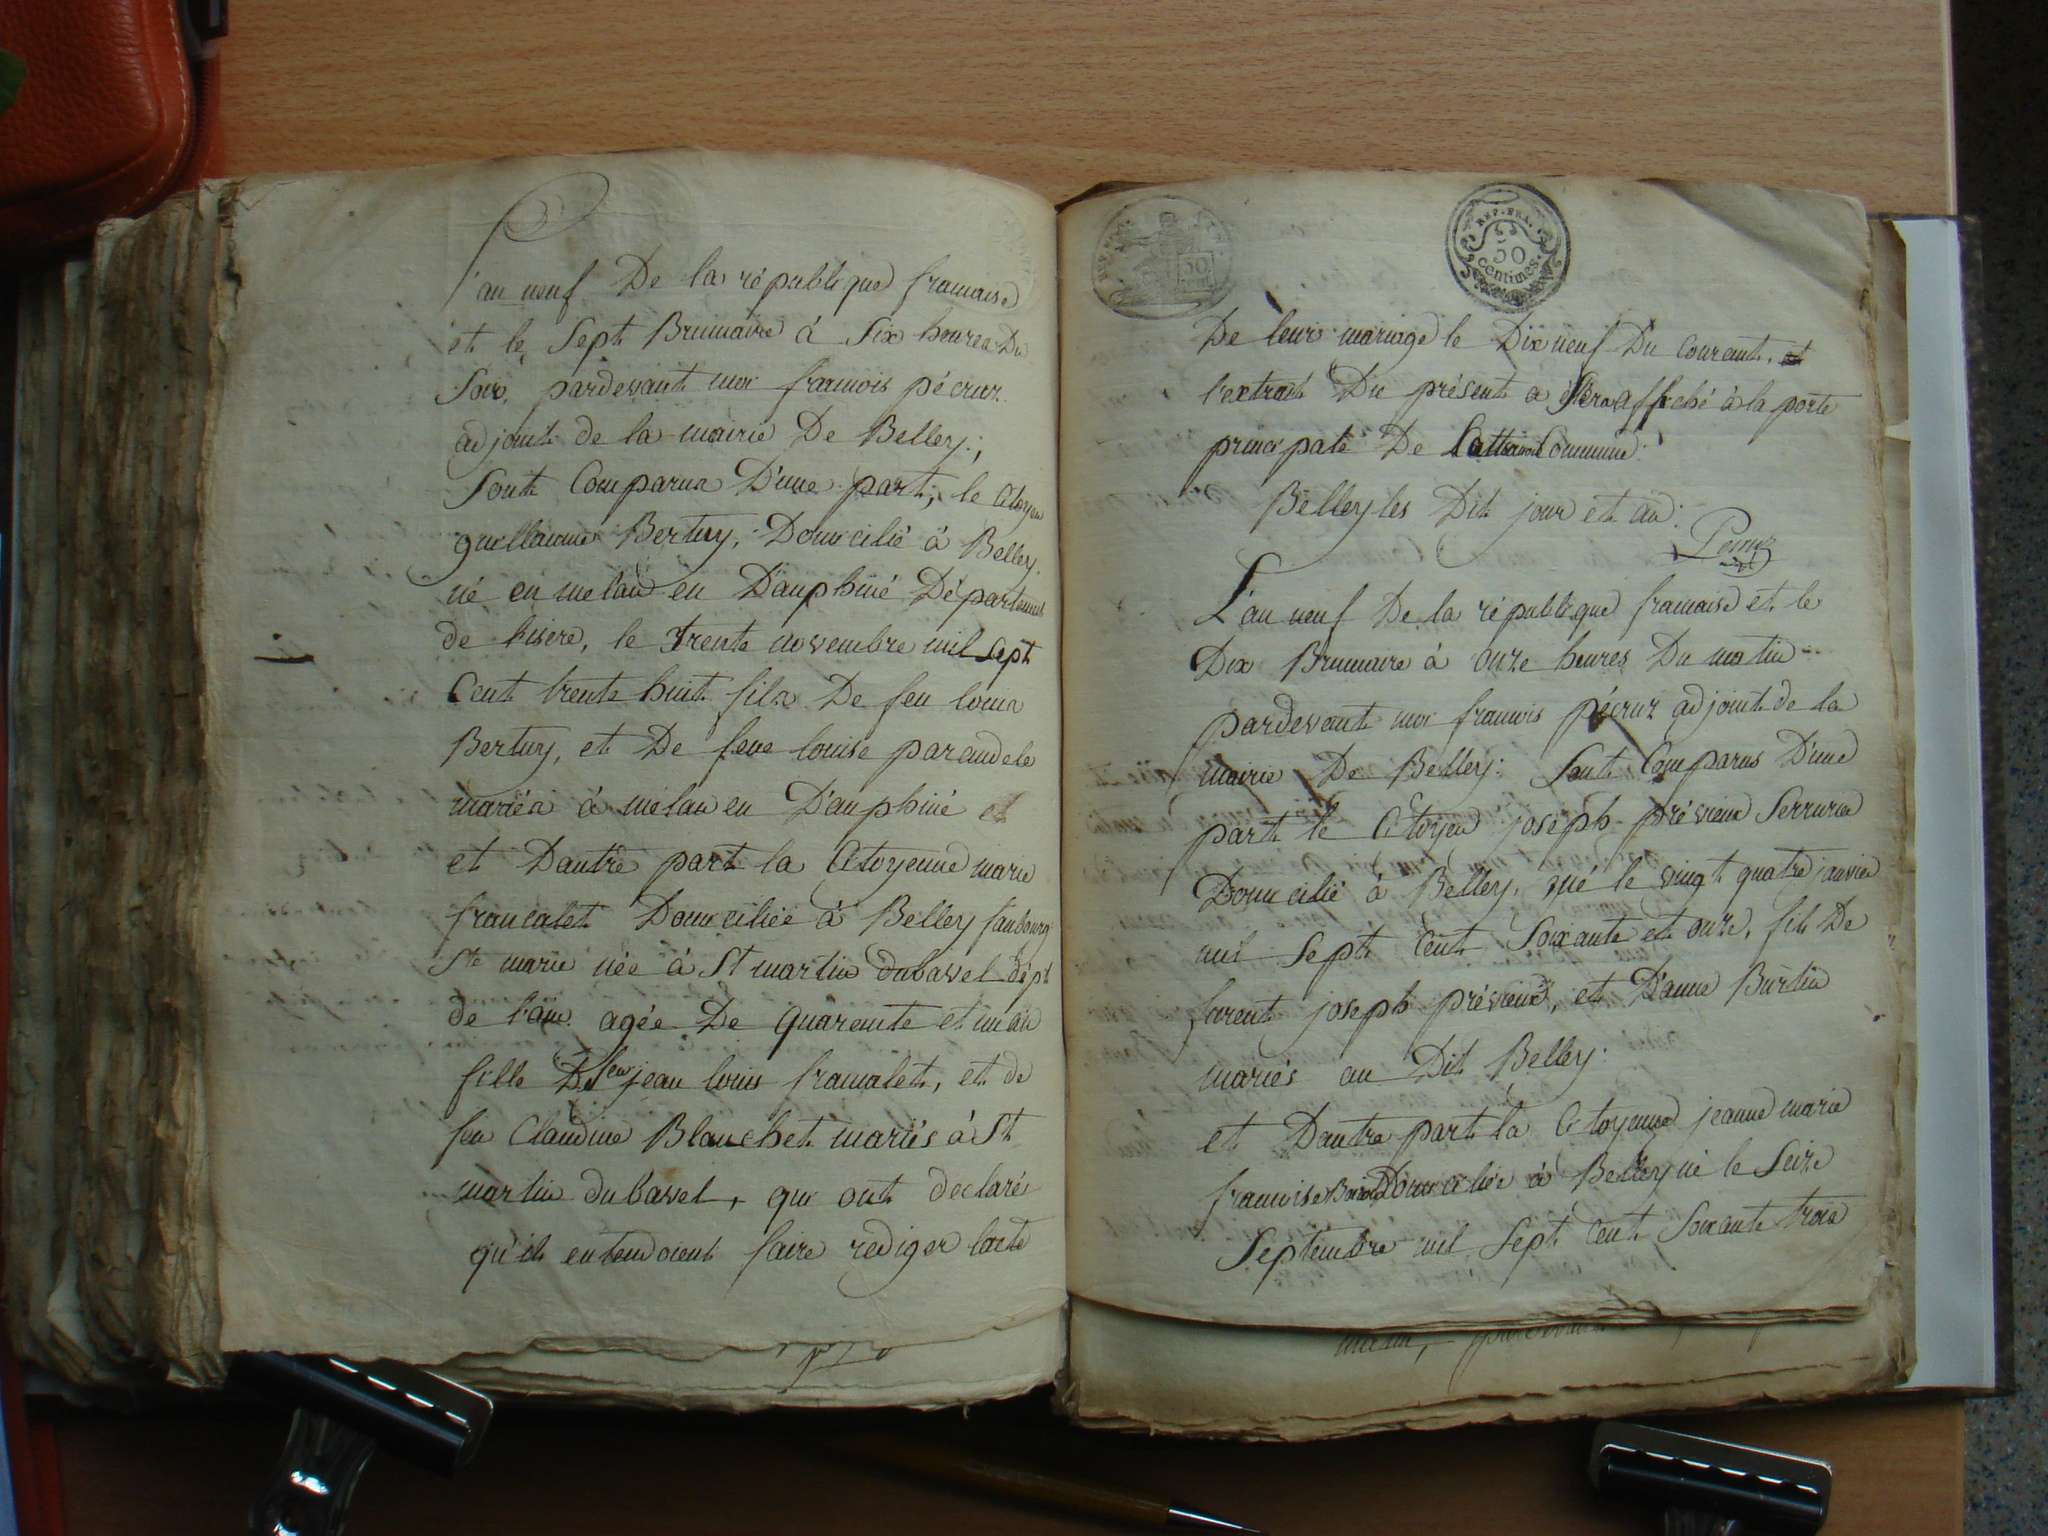 L'an neuf De la république francaise
et le Sept Brumaire à Six heures Du
Soir, pardevant moi francois pécruz
adjoint de la mairie De Belley;
Sont Comparus D'une part, le Citoyen
guillaume Bertuy, Domicilié à Belley
né en melan en Dauphiné Département
de lisere, le Trente novembre mil Sept
Cent trente huit fils De feu louis
Bertuy, et De feue louise parandele
mariés à mélan en Dauphiné et
et Dautre part la Citoyenne marie
francalet Domiciliée à Belley faubourg
Ste marie née à St martin dubavel dépt
de l'ain agée De quarente et un an
fille De feu jean louis francalet, et de
feu Claudine Blanchet mariés à St
martin dubavel, qui ont declarés
qu'ils entendoient faire rediger lacte
REP. FRA.
50
centimes.
De leur mariage le Dix neuf Du Courant, et
l'extrait Du présent a Sera affiché à la porte
principale De Commune:
Belley les Dit jour et an:
L'an neuf De la république francaise et le
Dix Brumaire à onze heures Du matin
pardevant moi francois pécruz adjoint de la
mairie De Belley: Sont Comparus D'une
part le Citoyen joseph prévieux Serrurier
Domicilié à Belley, né le vingt quatre janvier
mil Sept Cent Soixante et onze, fils De
Laurent joseph prévieux, et D'anne Burtin
mariés au Dit Belley:
et Dautre part la Citoyenne jeanne marie
francoise Domiciliée à Belley né le Seize
Septembre mil Sept Cent Soixante trois